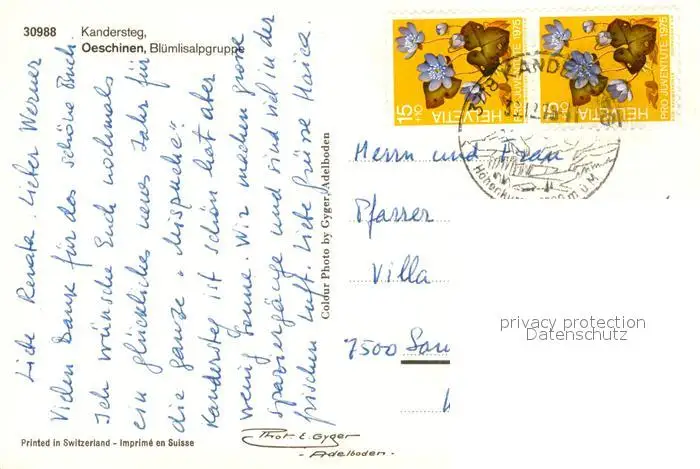 30988 Kandersteg,
Oeschinen, Blümlisalpgruppe
Liebe Renata. Lieber Werner
Vielen Dank für das schöne Buch.
Ich wünsche Euch nochmals
ein glückliches neues Jahr für
die ganze „Mispuche".
Kandersteg ist schön hat aber
wenig Sonne. Wir machen grosse
spaziergänge und sind viel in der
frischen Luft. Liebe Grüsse
Colour Photo by Gyger, Adelboden
Printed in Switzerland - Imprimé en Suisse
Phot. E. Gyger
- Adelboden -
15+10 HELVETIA PRO JUVENTUTE 1975
HELVETIA PRO JUVENTUTE 1975
KANDE
Höhenkur
m ü. M.
Herrn und Frau
Pfarrer
Villa
7500
privacy protection
Datenschutz